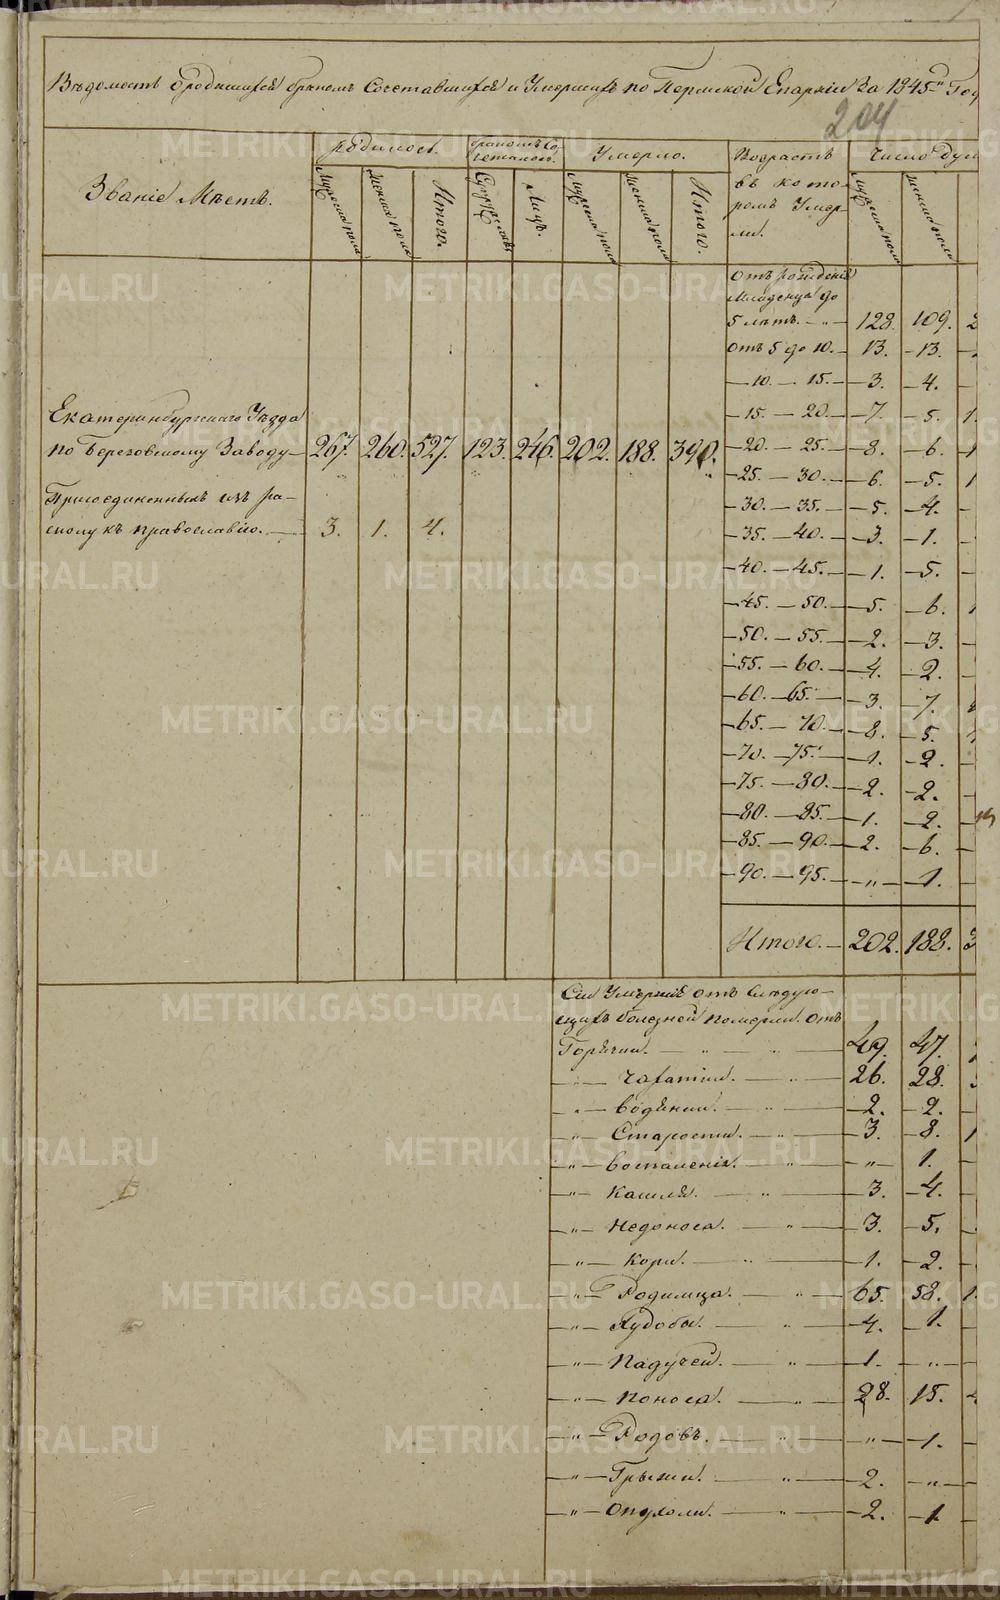 Вѣдомость о родившихся бракомъ Сочетавшихся и Умершихъ по Пермской Епархіи За 1845й Год
204
Званіе Мѣстъ.
родилось.
Мужеска пола
женска пола
Итого.
бракомъ Со-
четалось.
Супружествъ
Лицъ.
Умерло.
Мужеска пола
женска пола
Итого.
Возрастъ
въ кото-
ромъ Умер-
ли.
Число Душ
мужеска пола
женска пола
Екатеринбургскаго Уѣзда
по Березовскому Заводу— 267. 260. 527. 123. 246. 202. 188. 390.
Присоединенныхъ изъ ра-
сколу къ православію.— 3. 1. 4.
Отъ рожденія
Младенца до
5 лѣтъ. — „ — 128. 109. 2
отъ 5 до 10. — 13. — 13. —
— 10. — 15. — 3. — 4. —
— 15. — 20. — 7. — 5. 1
— 20. — 25. — 8. — 6. 1
— 25. — 30. — 6. — 5. 1
— 30. — 35. — 5. — 4. —
— 35. — 40. — 3. — 1. —
— 40. — 45. — 1. — 5. —
— 45. — 50. — 5. — 6. 1
— 50. — 55. — 2. — 3. —
— 55. — 60. — 4. — 2. —
— 60. — 65. — 3. — 7.
— 65. — 70. — 8. — 5.
— 70. — 75. — 1. — 2. —
— 75. — 80. — 2. — 2. —
— 80. — 85. — 1. — 2. —
— 85. — 90. — 2. — 6. —
— 90. — 95. — „ — 1. —
Итого. — 202. 188. 3
Сіи Умершіе отъ Слѣдую-
щихъ болезней померли. Отъ
Горячки. — „ — „ — 49. 47.
„ — Чахотки. — „ — 26. 28.
„ — Водянки. — „ — 2. — 2. —
„ — Старости. — „ — 3. — 8. 1
„ — воспаленія. — „ — „ — 1. —
„ — Кашля. — „ — 3. — 4. —
„ — Недоноса. — „ — 3. — 5.
„ — Кори. — „ — 1. — 2. —
„ — Родимца. — „ — 65. 58. 1
„ — Худобы. — „ — 4. — 1. —
„ — Падучей. — „ — 1. — „ —
„ — Поноса. — „ — 28. 15.
„ — Родовъ. — „ — „ — 1. —
„ — Грыжи. — „ — 2. — „ —
„ — Опухоли. — „ — 2. — 1 —
METRIKI.GASO-URAL.RU